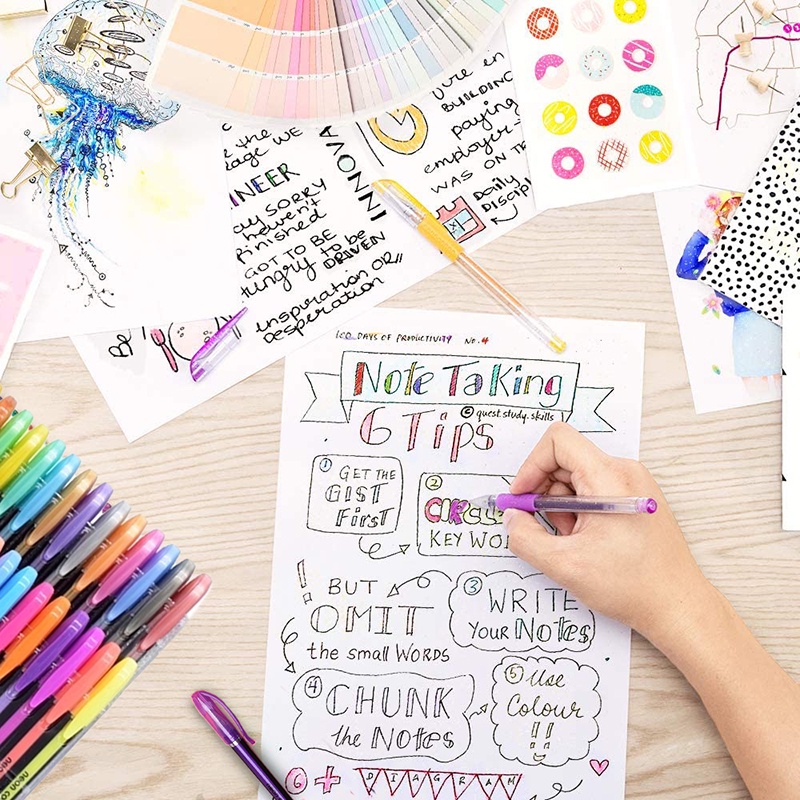 the
age WE
NEER
SORRY
haven't
finished
GOT TO BE
Hungry to be
DRIVEN
inspiration OR
Desperation
INNOVA
u're en
BUILDING
paying
employer
WAS ON
Daily
Discipl
100 DAYS OF PRODUCTIVITY No. 4
Note Taking
© quest.study.skills
6 Tips
1 GET THE
GIST
First
2
CIRCLE
KEY WO
! BUT
OMIT
the small WORDS
3 WRITE
YOUR Notes
4 CHUNK
the Notes
5 Use
Colour
!!
6 + DIAGRAM
neon co